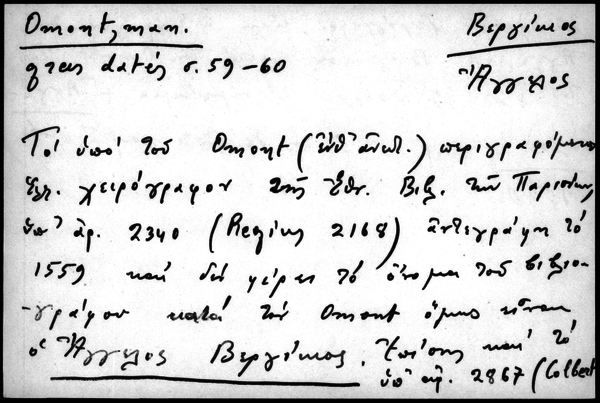 Omont, man.
grecs datés σ. 59-60
Βεργίκιος
Ἄγγελος
Τό ὑπό τοῦ Omont (ἔνθ' ἀνωτ.) περιγραφόμενον
ἑλλ. χειρόγραφον τῆς Ἐθν. Βιβλ. τῶν Παρισίων
ὑπ' ἀρ. 2340 (Regius 2168) ἀντεγράφη τό
1559 καί δέν φέρει τό ὄνομα τοῦ βιβλιο-
-γράφου κατά τόν Omont ὅμως εἶναι
ὁ Ἄγγελος Βεργίκιος. Ἐπίσης καί τό
ὑπ' ἀρ. 2867 (Colbert